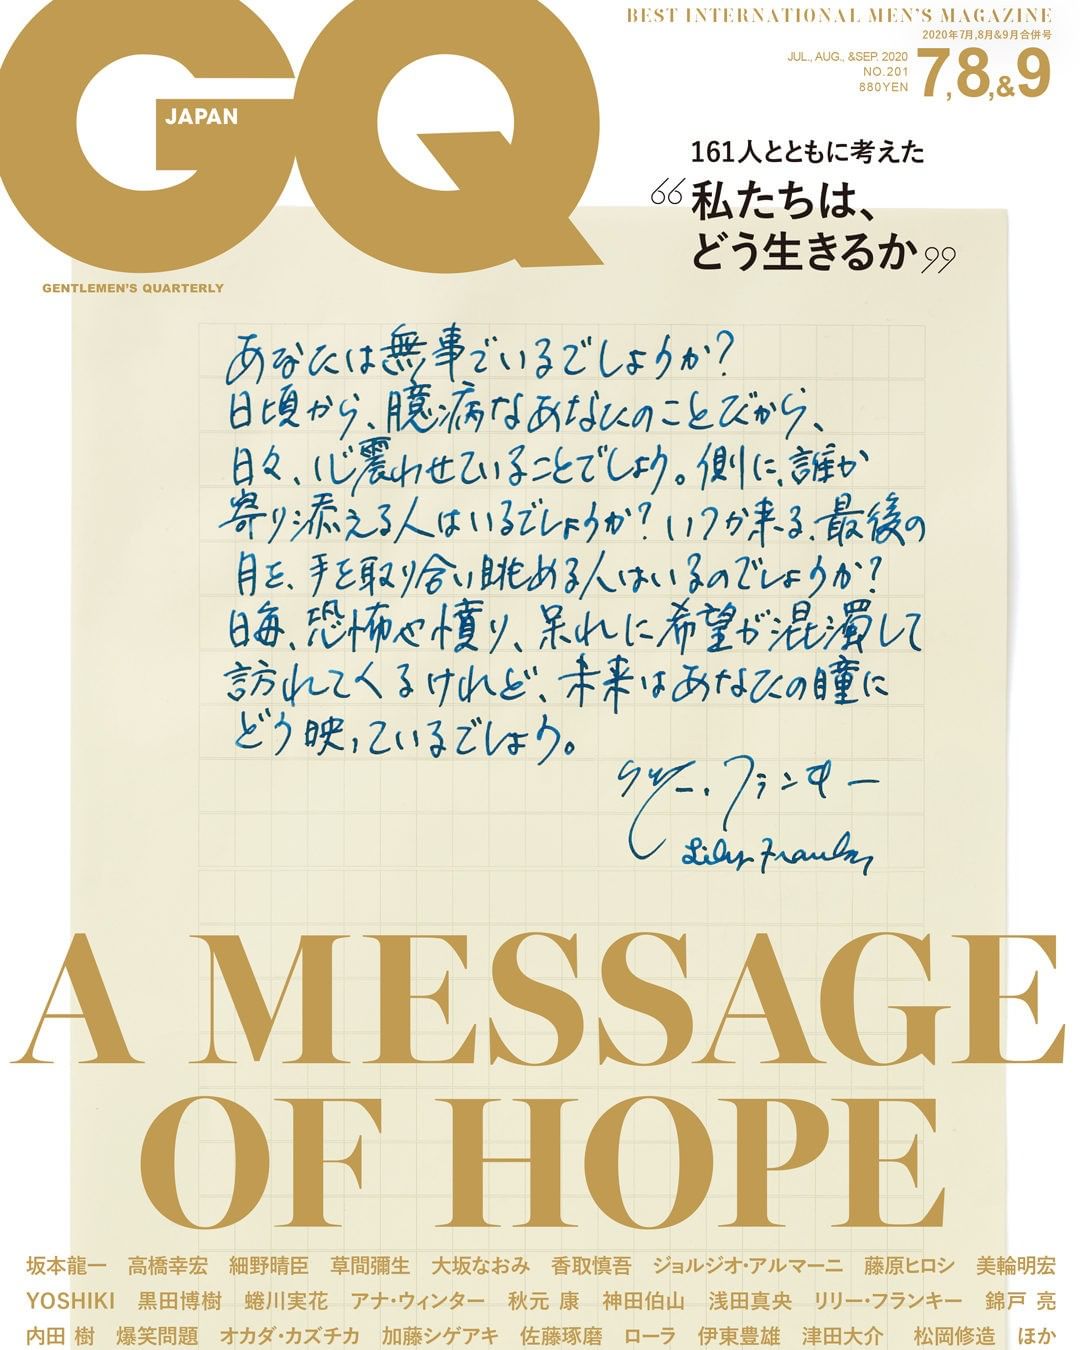 GQ
JAPAN
GENTLEMEN'S QUARTERLY
BEST INTERNATIONAL MEN'S MAGAZINE
2020年7月,8月&9月合併号
JUL., AUG., &SEP. 2020
NO.201
880YEN
7,8,&9
161人とともに考えた
“私たちは、
どう生きるか”
あなたは無事でいるでしょうか?
日頃から、臆病なあなたのことだから、
日々、心震わせていることでしょう。側に、誰か
寄り添える人はいるでしょうか?いつか来る、最後の
月を、手を取り合い眺める人はいるのでしょうか?
日毎、恐怖や憤り、呆れに希望が混濁して
訪れてくるけれど、未来はあなたの瞳に
どう映っているでしょう。
リリー・フランキー
Lily Franky
A MESSAGE
OF HOPE
坂本龍一 高橋幸宏 細野晴臣 草間彌生 大坂なおみ 香取慎吾 ジョルジオ・アルマーニ 藤原ヒロシ 美輪明宏
YOSHIKI 黒田博樹 蜷川実花 アナ・ウィンター 秋元 康 神田伯山 浅田真央 リリー・フランキー 錦戸 亮
内田 樹 爆笑問題 オカダ・カズチカ 加藤シゲアキ 佐藤琢磨 ローラ 伊東豊雄 津田大介 松岡修造 ほか